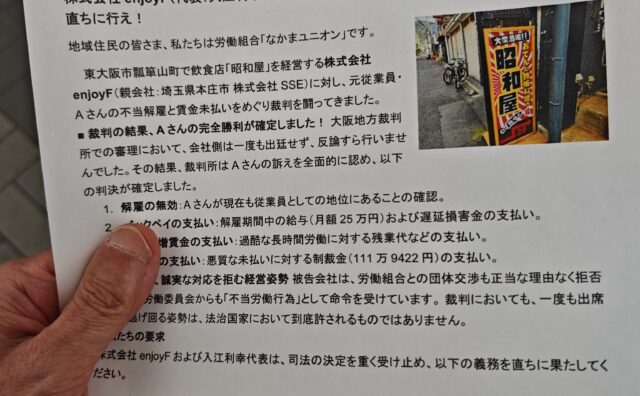 直ちに行え！
地域住民の皆さま、私たちは労働組合「なかまユニオン」です。
東大阪市瓢箪山町で飲食店「昭和屋」を経営する株式会社
enjoyF（親会社：埼玉県本庄市 株式会社 SSE）に対し、元従業員・
Aさんの不当解雇と賃金未払いをめぐり裁判を闘ってきました。
■ 裁判の結果、Aさんの完全勝利が確定しました！ 大阪地方裁判
所での審理において、会社側は一度も出廷せず、反論すら行いませ
んでした。その結果、裁判所はAさんの訴えを全面的に認め、以下
の判決が確定しました。
1. 解雇の無効：Aさんが現在も従業員としての地位にあることの確認。
2. ックペイの支払い：解雇期間中の給与（月額 25 万円）および遅延損害金の支払い。
増賃金の支払い：過酷な長時間労働に対する残業代などの支払い。
の支払い：悪質な未払いに対する制裁金（111 万 9422 円）の支払い。
、誠実な対応を拒む経営姿勢 被告会社は、労働組合との団体交渉も正当な理由なく拒否
労働委員会からも「不当労働行為」として命令を受けています。裁判においても、一度も出席
逃げ回る姿勢は、法治国家において到底許されるものではありません。
たちの要求
株式会社 enjoyF および入江利幸代表は、司法の決定を重く受け止め、以下の義務を直ちに果たしてく
ださい。
大衆酒場!!
昭和屋